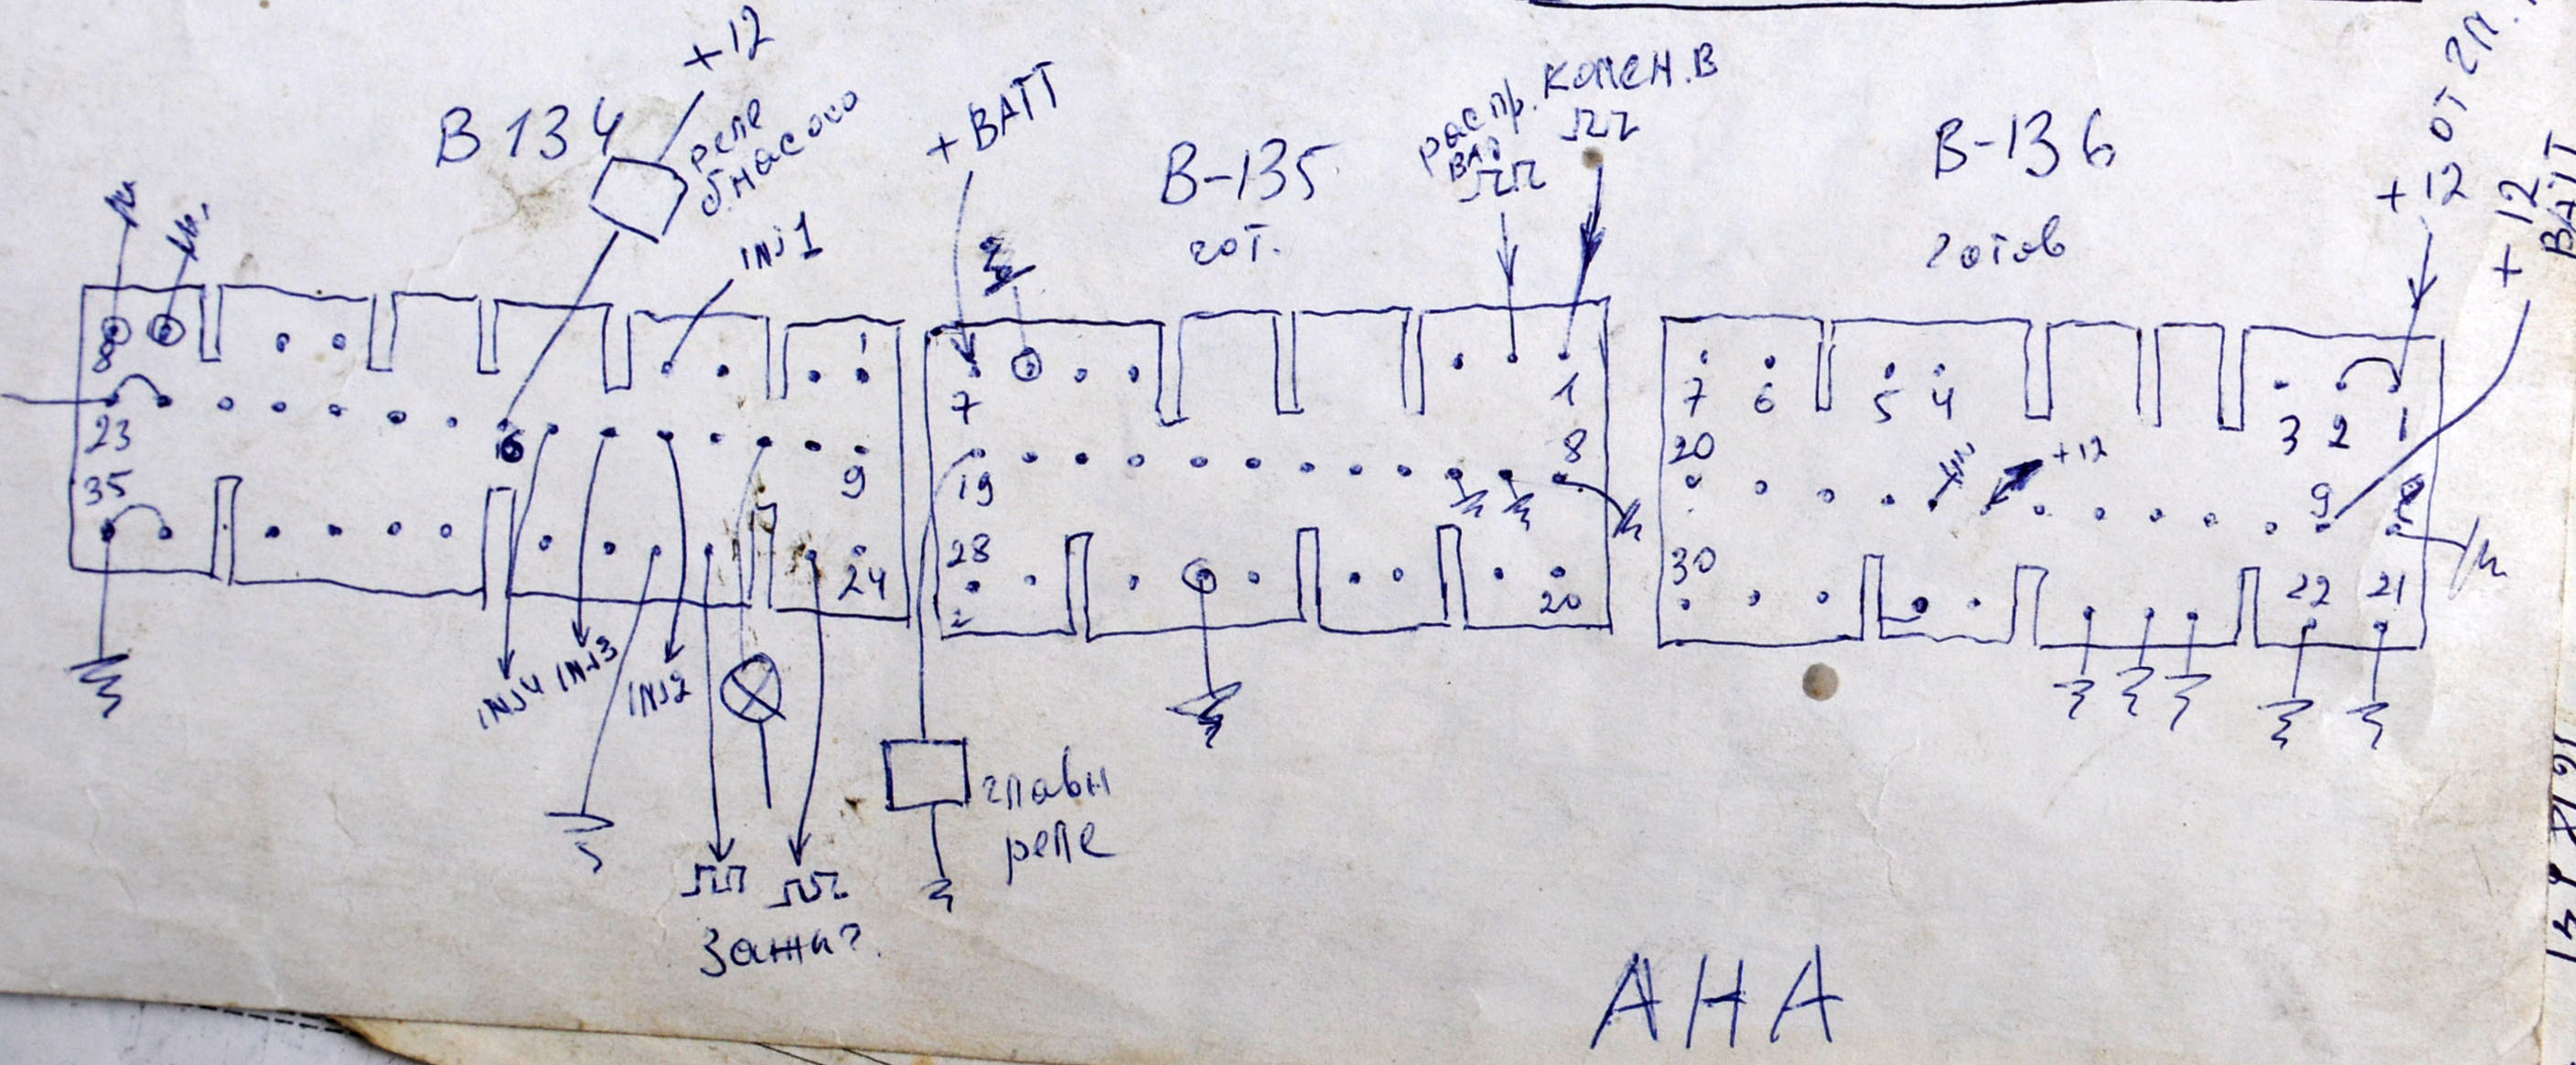 В 134
+12
реле
бнасоса
INJ1
+ BATT
В-135
гот.
распр.
вал
колен.в
В-136
готов
+12 от гл.
+12
BATT
8
23
35
9
24
7
1
19
8
28
20
7
6
5
4
3
2
1
20
+12
9
30
22
21
INJ4
INJ3
INJ2
главн
реле
Зажиг.
АНА